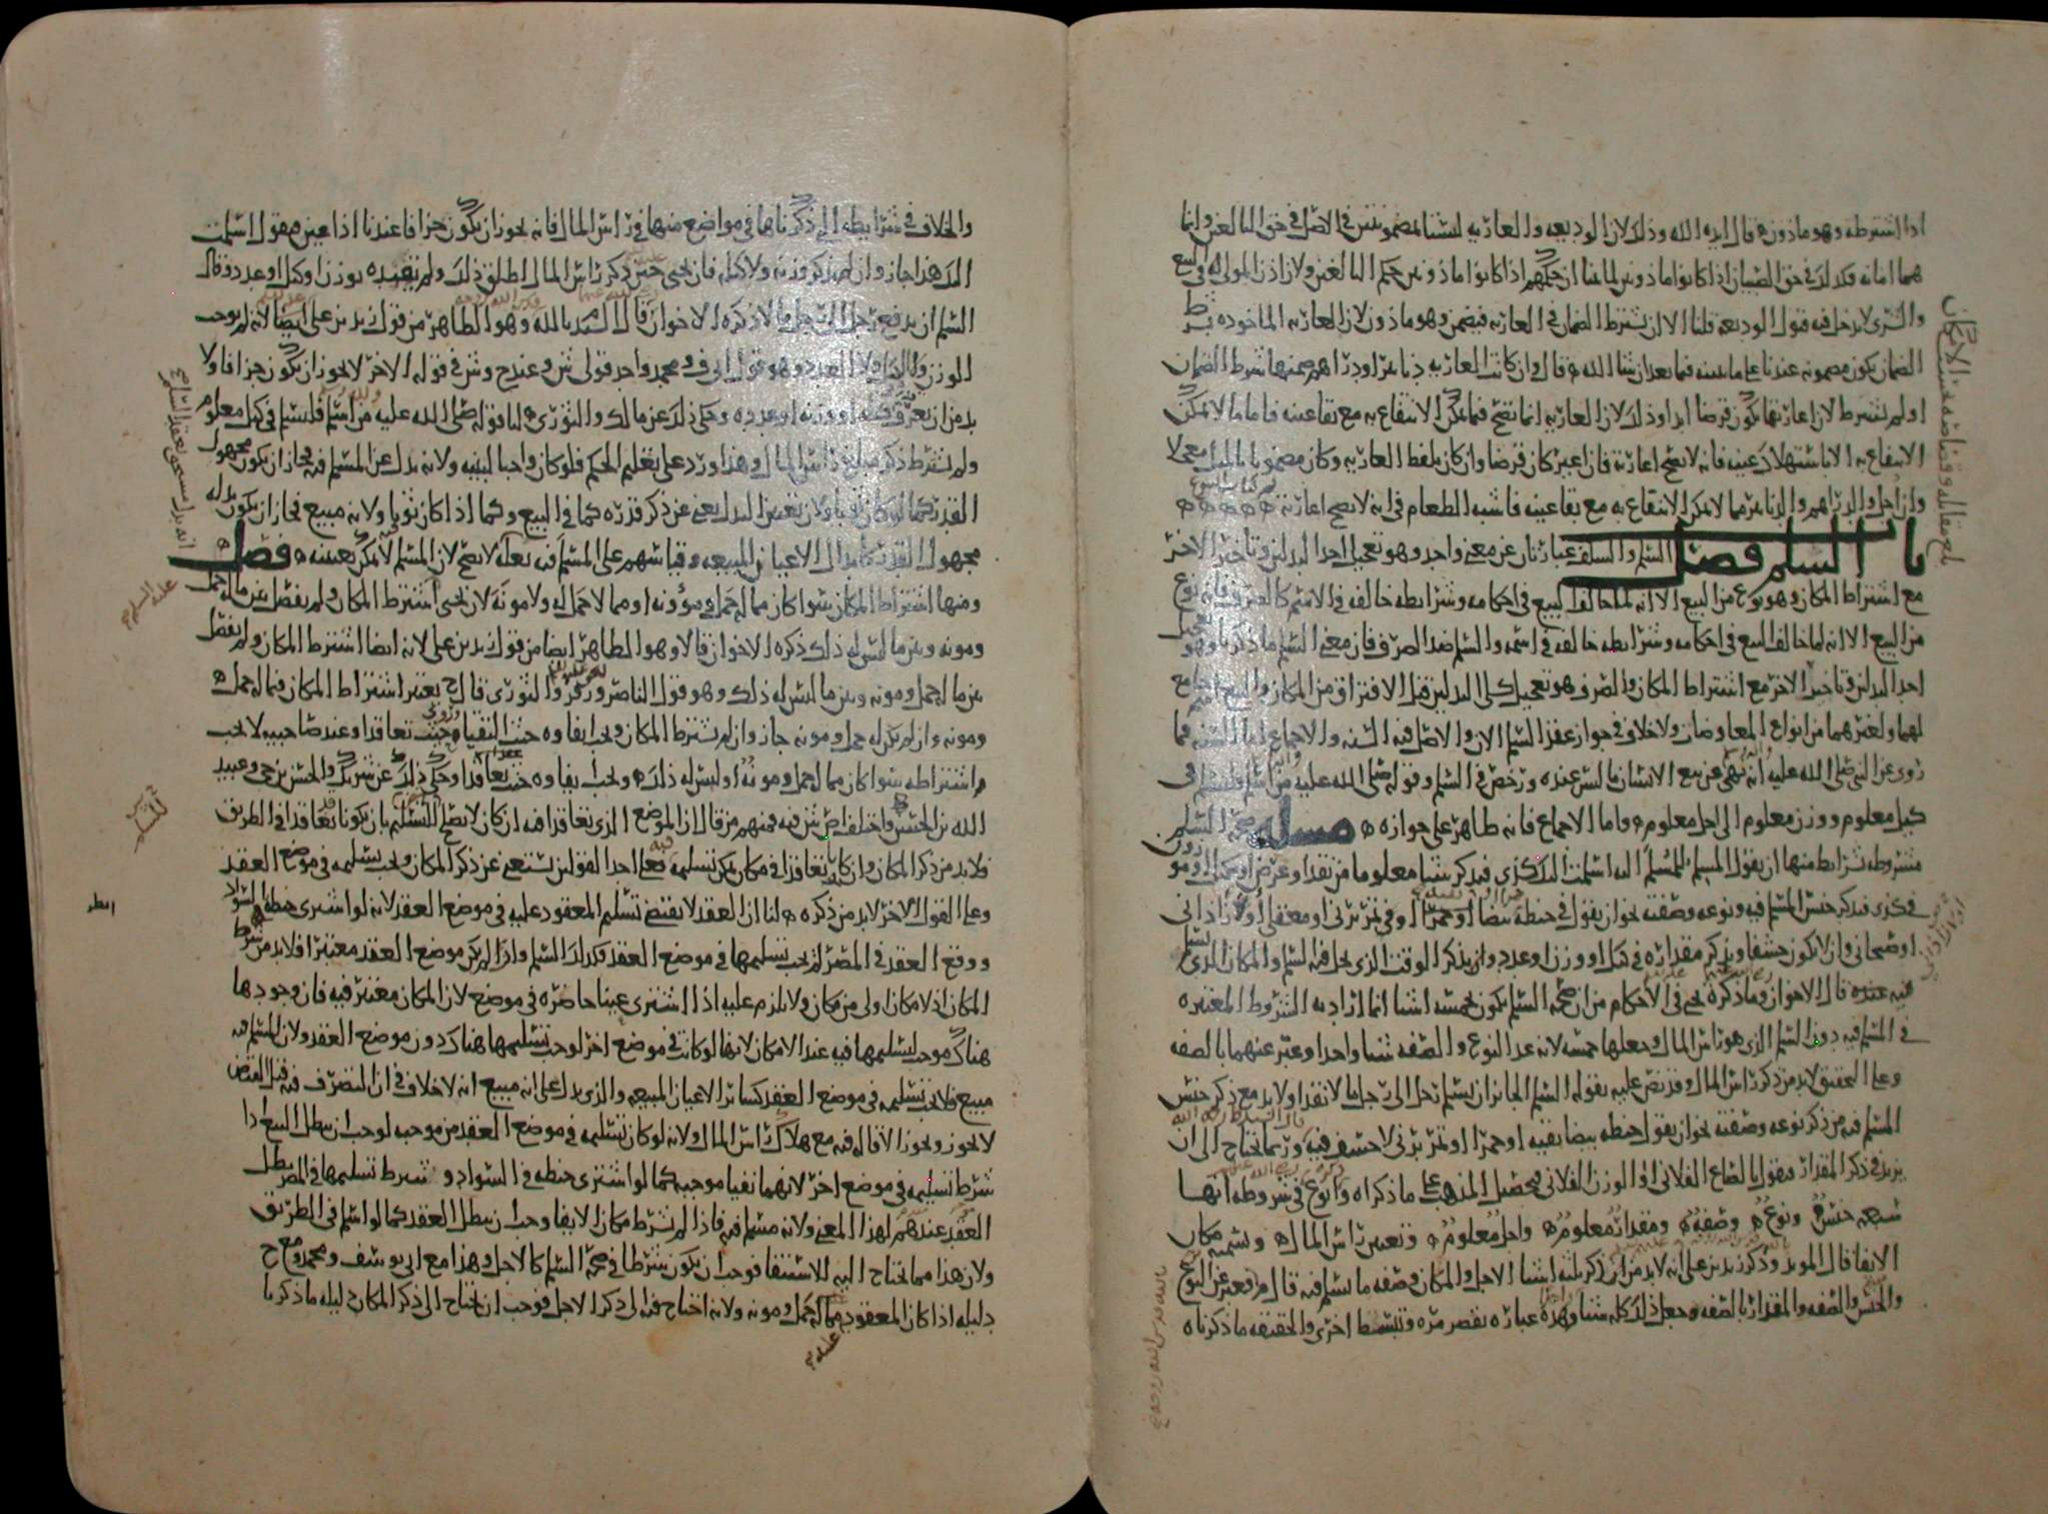 اذا اشترطه وهو ماذون ه قال ايده الله وذلك لان الوديعه والعاريه ليستا بمضمونتين في الاصل في حق البالغين وانما
هما امانه فكذلك في حق الصبيان اذا كانوا ماذونين لما بينا ان حكمهم اذا كانوا ماذونين حكم البالغين ولان اذن المولى له في البيع
والشرى لا يدخل فيه قبول الوديعه قلنا الا ان يشترط الضمان في العاريه فيضمن وهو ماذون لان العاريه الماخوذه بشرط
الضمان يكون مضمونه عندنا على ما نبينه فيما بعد ان شا الله ه قال وان كانت العاريه دنانير او دراهم ضمنها شرط الضمان
او لم يشترط لان اعارتها يكون قرضا ابدا وذلك لان العاريه انما تصح فيما يمكن الانتفاع به مع بقا عينه فاما ما لا يمكن
الانتفاع به الا باستهلاك عينه فانه لا تصح اعارته فان اعير كان قرضا وان كان بلفظ العاريه وكان مضمونا بالمثل معجلا
وان اجل والدراهم والدنانير مما لا يمكن الانتفاع به مع بقا عينه فاشبه الطعام في انه لا تصح اعارته ه ه ه ه ه
باب السلم فصل السلم والسلف عبارتان عن معنى واحد وهو تعجيل احد البدلين وتاخير الاخر
مع اشتراط المكان وهو نوع من البيع الا انه لما خالف البيع في احكامه وشرايطه خالفه في الاسم كالصرف فانه نوع
من البيع الا انه لما خالف البيع في احكامه وشرايطه خالفه في اسمه والسلم ضد الصرف فان معنى السلم ما ذكرنا وهو تعجيل
احد البدلين وتاخير الاخر مع اشتراط المكان والصرف هو تعجيل كلى البدلين قبل الافتراق من المكان والبيع جامع
لهما ولغيرهما من انواع المعاوضات ولا خلاف في جواز عقد السلم الان والاصل فيه السنه والاجماع اما السنه فما
روى عن النبي صلى الله عليه انه نهى عن بيع الانسان ما ليس عنده ورخص في السلم وقوله صلى الله عليه من اسلم فليسلم في
كيل معلوم ووزن معلوم الى اجل معلوم ه واما الاجماع فانه ظاهر على جوازه ه مسله صحة السلم
مشروطه بشرايط منها ان يقول المسلم للمسلم اليه اسلمت اليك كذى فيذكر شيئا معلوما من نقد او عرض او مكيل او موزون
في كذى فيذكر جنس المسلم فيه ونوعه وصفته نحو ان يقول في حنطة بيضا او حمرا او في تمر برني او معقلي او اذاذ اني
او صيحاني وان لا يكون حشفا ويذكر مقداره في كيل او وزن او عدد وان يذكر الوقت الذي يحل فيه السلم والمكان الذي يسلم
فيه عنده قال الاخوان وما ذكره يحيى في الاحكام من ان صحة السلم يكون بخمسه اشيا انما اراد به الشروط المعتبره
في المسلم فيه دون السلم الذي هو راس المال وجعلها خمسه لانه عد النوع والصفه شيئا واحدا وعبر عنهما بالصفه
وعلى التحقيق لا بد من ذكر راس المال وقد نص عليه بقوله السلم الجائز ان يسلم رجل الى رجل مالا نقدا ولا بد مع ذكر جنس
المسلم فيه من ذكر نوعه وصفته نحو ان يقول حنطه بيضا نقيه او حمرا او تمر برني لا حشف فيه وربما يحتاج الى ان
يزيد في ذكر المقدار فيقول بالصاع الفلاني او الوزن الفلاني فيحصل المذهب على ما ذكراه وانوع في شروطه انها
سبعه جنس ه ونوع ه وصفه ه ومقدار معلوم ه واجل معلوم ه وتعيين راس المال ه وتسميه مكان
الايفا قال المويد وذكر زيد بن علي انه لا بد من ان يذكر ثلثه اشيا الاجل والمكان وصفه ما يسلم فيه قال م فعبر عن النوع
والجنس والصفه والمقدار بالصفه وجعل ذلك كله شيئا وهذه عباره تقصر مره وتبسط اخرى والحقيقه ما ذكرناه
والخلاف في شرايطه التي ذكرناها في مواضع منها في راس المال فانه يجوز ان يكون جزافا عندنا اذا عين فيقول اسلمت
اليك هذا جاز وان لم يذكر وزنه ولا كيله فان يحيى حين ذكر راس المال اطلق ذلك ولم يقيده بوزن او كيل او عدد وقال
السلم ان يدفع رجل الى رجل مالا ذكره الاخوان قال السيد بالله وهو الظاهر من قول زيد بن علي ايضا لانه لم يوجب
الوزن والكيل ولا العدد وهو قول ابي ف ومحمد واحد قولي ش وعند ح وش في قوله الاخر لا يجوز ان يكون جزافا ولا
بد من ان يعرف كيله او وزنه او عدده وحكي ذلك عن مالك والثوري ه لنا قوله صلى الله عليه من اسلم فليسلم في كيل معلوم
ولم يشترط ذكر مبلغ راس المال وهذا ورد على تعليم الحكم فلو كان واجبا لبينه ولانه بدل عن المسلم فيه فجاز ان يكون مجهول
القدر كما لو كان ثوبا ولان تعيين البدل يغني عن ذكر قدره كما في البيع وكما اذا كان ثوبا ولانه مبيع فجاز ان يكون بدله
مجهول القدر كابدال الاعيان المبيعه وقياسهم على المسلم فيه بعله لا تصح لان المسلم لا يمكن تعيينه ه فصل
ومنها اشتراط المكان سوا كان مما له حمل ومؤونه او مما لا حمل له ولا مونه لان يحيى اشترط المكان ولم يفصل بين ما له حمل
ومونه وبين ما ليس له ذلك ذكره الاخوان قالا وهو الظاهر ايضا من قول زيد بن علي لانه ايضا اشترط المكان ولم يفصل
بين ما له حمل ومونه وبين ما ليس له ذلك وهو قول الناصر وزفر والثوري قال ح يعتبر اشتراط المكان فيما له حمل ه
ومونه وان لم يكن له حمل ومونه جاز وان لم يشترط المكان ويجب ايفاوه حيث التقيا وروي حيث تعاقدا وعند صاحبيه لا يجب
اشتراطه سوا كان مما له حمل ومونه او ليس له ذلك ه ويجب ايفاوه حيث تعاقدا وحكي ذلك عن شريك والحسن بن حي وعبيد
الله بن الحسن واختلف اص ش فيه فمنهم من قال ان الموضع الذي تعاقدا فيه ان كان لا يصلح للتسليم بان يكونا تعاقدا في الطريق
فلا بد من ذكر المكان وان كانا تعاقدا في مكان يمكن تسليمه فيه فعلى احد القولين يستغنى عن ذكر المكان ويجب تسليمه في موضع العقد
وعلى القول الاخر لا بد من ذكره ه لنا ان العقد لا يقتضي تسليم المعقود عليه في موضع العقد لانه لو اشترى حنطه في السواد
ووقع العقد في المصر لم يجب تسليمها في موضع العقد فكذلك السلم واذا لم يكن موضع العقد معتبرا فلا بد من شرط
المكان اذ لا مكان اولى من مكان ولا يلزم عليه اذا اشترى عينا حاضره في موضع لان المكان معتبر فيه فان وجودها
هناك موجب لتسليمها فيه عند الامكان لانها لو كانت في موضع اخر لوجب تسليمها هناك دون موضع العقد ولان المسلم فيه
مبيع فلا يجب تسليمه في موضع العقد كسائر الاعيان المبيعه والذي يدل على انه مبيع انه لا خلاف في ان التصرف فيه قبل القبض
لا يجوز ويجوز الاقاله فيه مع هلاك راس المال ولانه لو كان تسليمه في موضع العقد من موجبه لوجب ان يبطل البيع اذا
شرط تسليمه في موضع اخر لانهما نفيا موجبه كما لو اشترى حنطه في السواد وشرط تسليمها في المصر بطل
العقد عندهم لهذا المعنى ولانه مسلم فيه فاذا لم يشرط مكان الايفا وجب ان يبطل العقد كما لو اسلم في الطريق
ولان هذا مما يحتاج اليه للاستيفا فوجب ان يكون شرطا في صحة السلم كالاجل وهذا مع ابي يوسف ومحمد ومع ح
دليله اذا كان المعقود مما له حمل ومونه ولانه احتاج فيه الى ذكر الاجل فوجب ان يحتاج الى ذكر المكان دليله ما ذكرنا